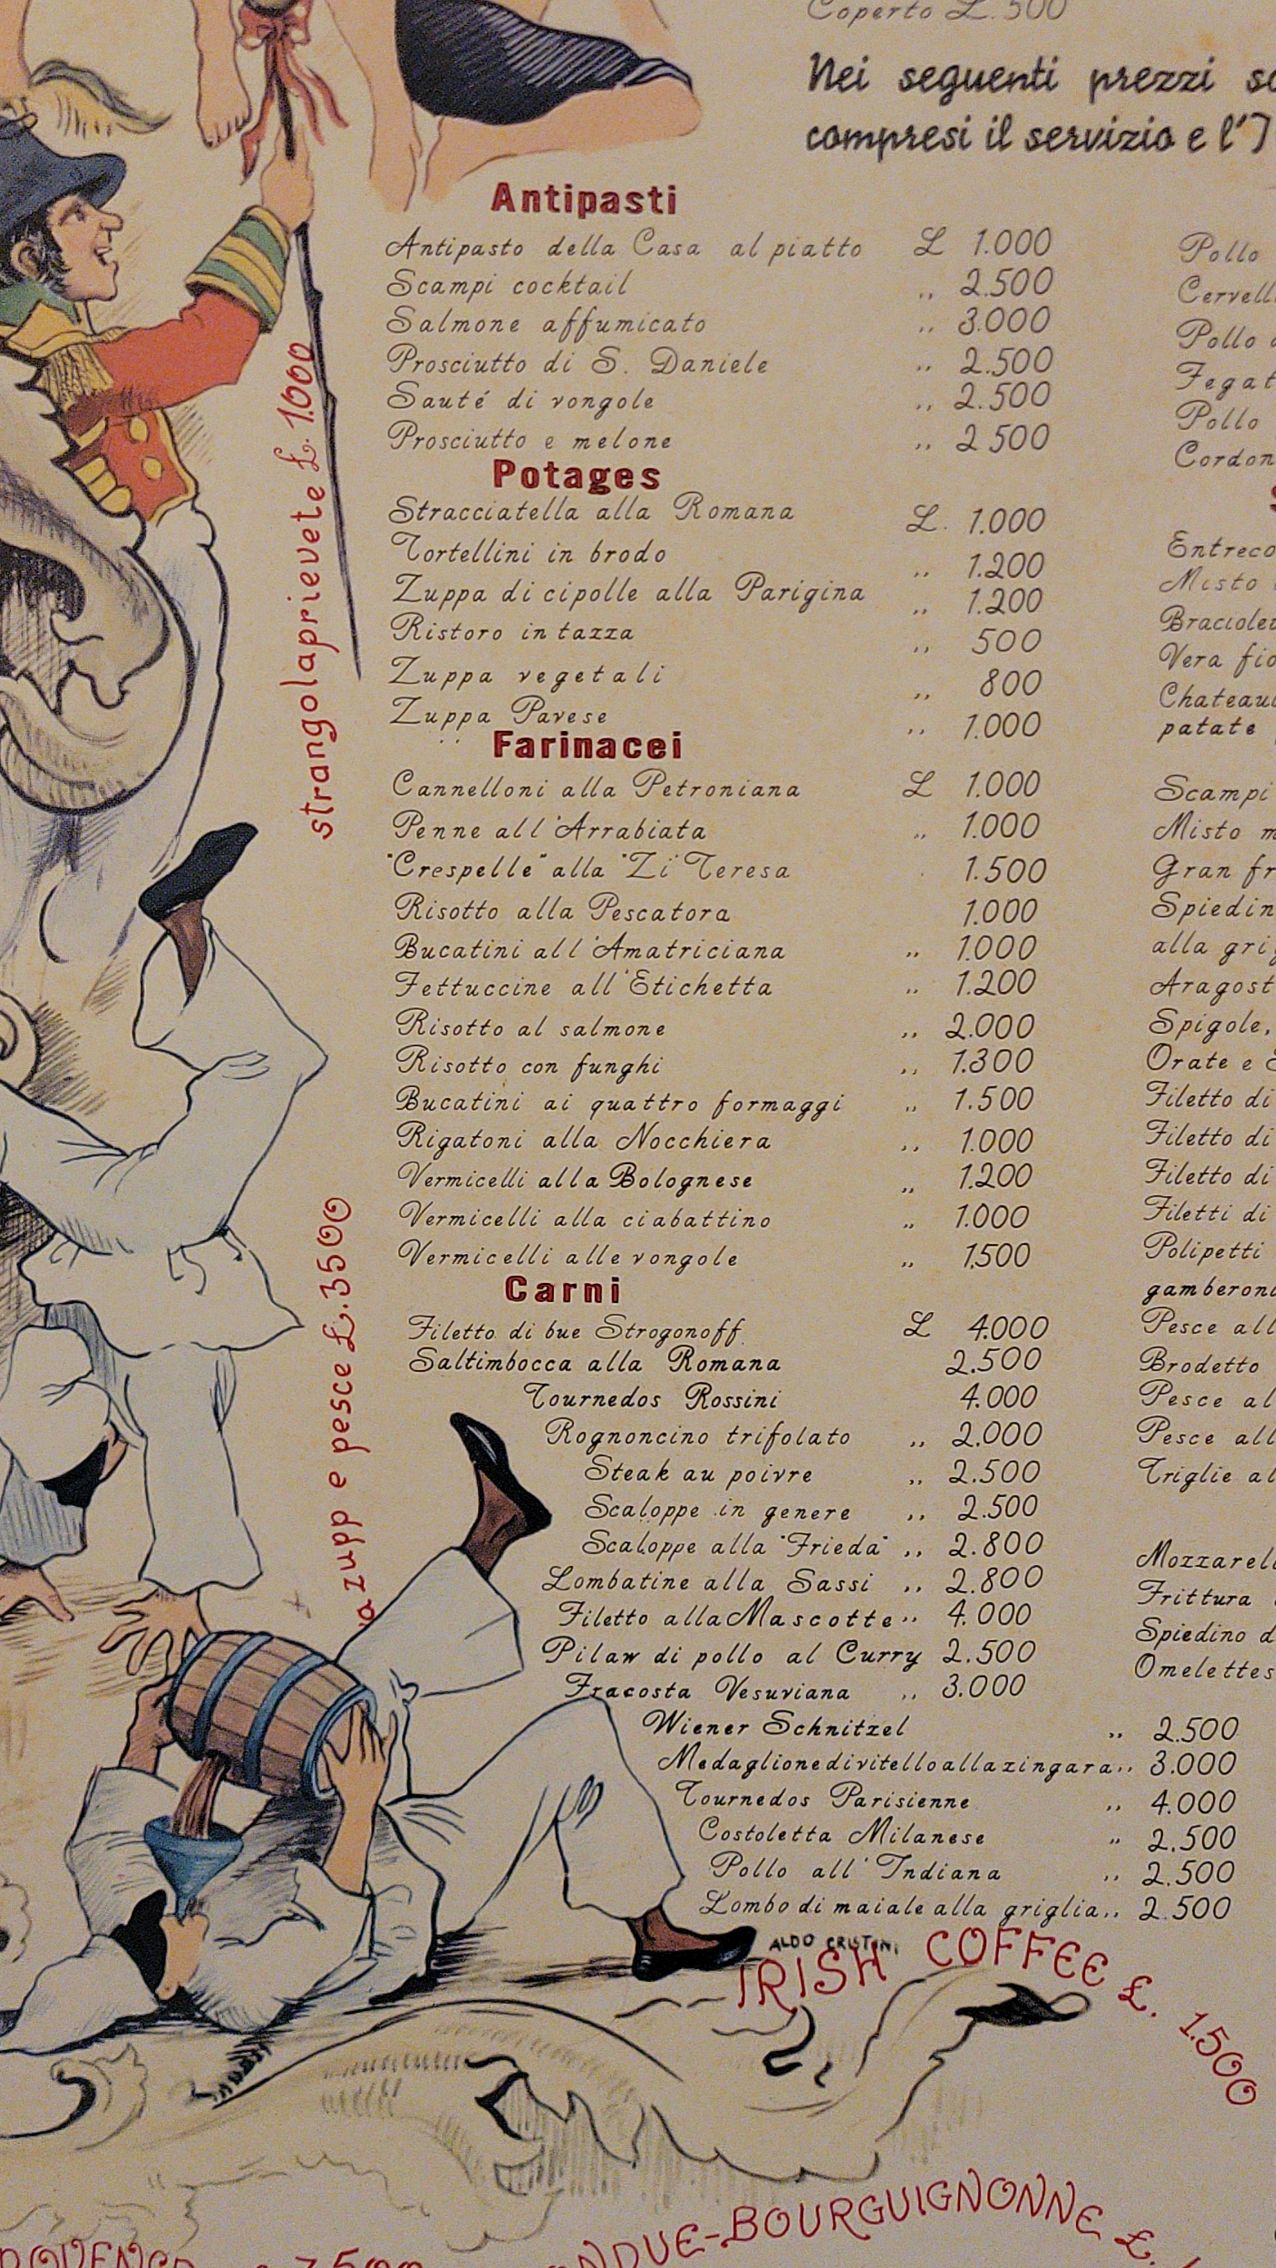 Coperto £. 500
Nei seguenti prezzi
compresi il servizio e l'
Antipasti
Antipasto della Casa al piatto £ 1.000
Scampi cocktail ,, 2.500
Salmone affumicato ,, 3.000
Prosciutto di S. Daniele ,, 2.500
Sauté di vongole ,, 2.500
Prosciutto e melone ,, 2 500
Potages
Stracciatella alla Romana £. 1.000
Tortellini in brodo ,, 1.200
Zuppa di cipolle alla Parigina ,, 1.200
Ristoro in tazza ,, 500
Zuppa vegetali ,, 800
Zuppa Pavese ,, 1.000
Farinacei
Cannelloni alla Petroniana £ 1.000
Penne all'Arrabiata ,, 1.000
"Crespelle" alla "Zi" Teresa 1.500
Risotto alla Pescatora 1.000
Bucatini all'Amatriciana ,, 1.000
Fettuccine all'Etichetta ,, 1.200
Risotto al salmone ,, 2.000
Risotto con funghi ,, 1.300
Bucatini ai quattro formaggi ,, 1.500
Rigatoni alla Nocchiera ,, 1.000
Vermicelli alla Bolognese ,, 1.200
Vermicelli alla ciabattino ,, 1.000
Vermicelli alle vongole ,, 1.500
Carni
Filetto di bue Strogonoff £ 4.000
Saltimbocca alla Romana 2.500
Tournedos Rossini 4.000
Rognoncino trifolato ,, 2.000
Steak au poivre ,, 2.500
Scaloppe in genere ,, 2.500
Scaloppe alla "Frieda" ,, 2.800
Lombatine alla Sassi ,, 2.800
Filetto alla Mascotte ,, 4.000
Pilaw di pollo al Curry 2.500
Fracosta Vesuviana ,, 3.000
Wiener Schnitzel ,, 2.500
Medaglione di vitello alla zingara ,, 3.000
Tournedos Parisienne ,, 4.000
Costoletta Milanese ,, 2.500
Pollo all'Indiana ,, 2.500
Lombo di maiale alla griglia ,, 2.500
strangolaprievete £. 1.000
zupp e pesce £. 3500
ALDO
IRISH COFFEE £. 1.500
BOURGUIGNONNE £.
Pollo
Pollo
Pollo
Cordon
Misto
Vera
patate
Scampi
Misto
Gran
alla
Spigole,
Orate e
Filetto di
Filetto di
Filetto di
Filetti di
Polipetti
Pesce
Brodetto
Pesce
Pesce
Triglie
Frittura
Spiedino
Omelettes